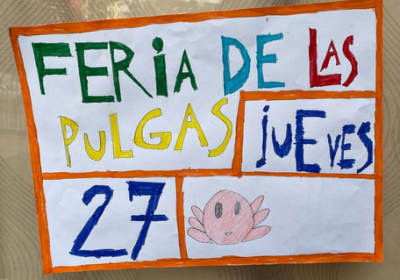 FERiA DE LAS
PULGAS
jUEVES
27